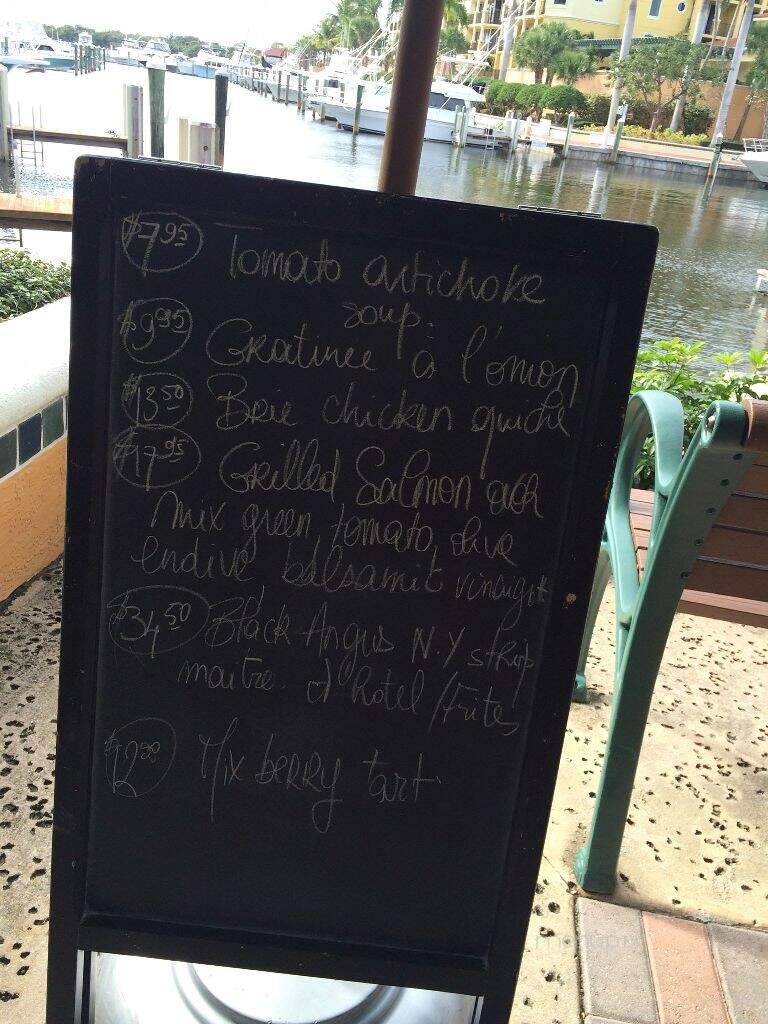 $7.95 Tomato artichoke
soup.
$9.95 Gratinée à l'onion
$13.50 Brie chicken quiche
$17.95 Grilled Salmon
mix green, tomato, olive
endive balsamic
$34.50 Black Angus N.Y strip
maitre d'hotel / Frites
Mix berry tart